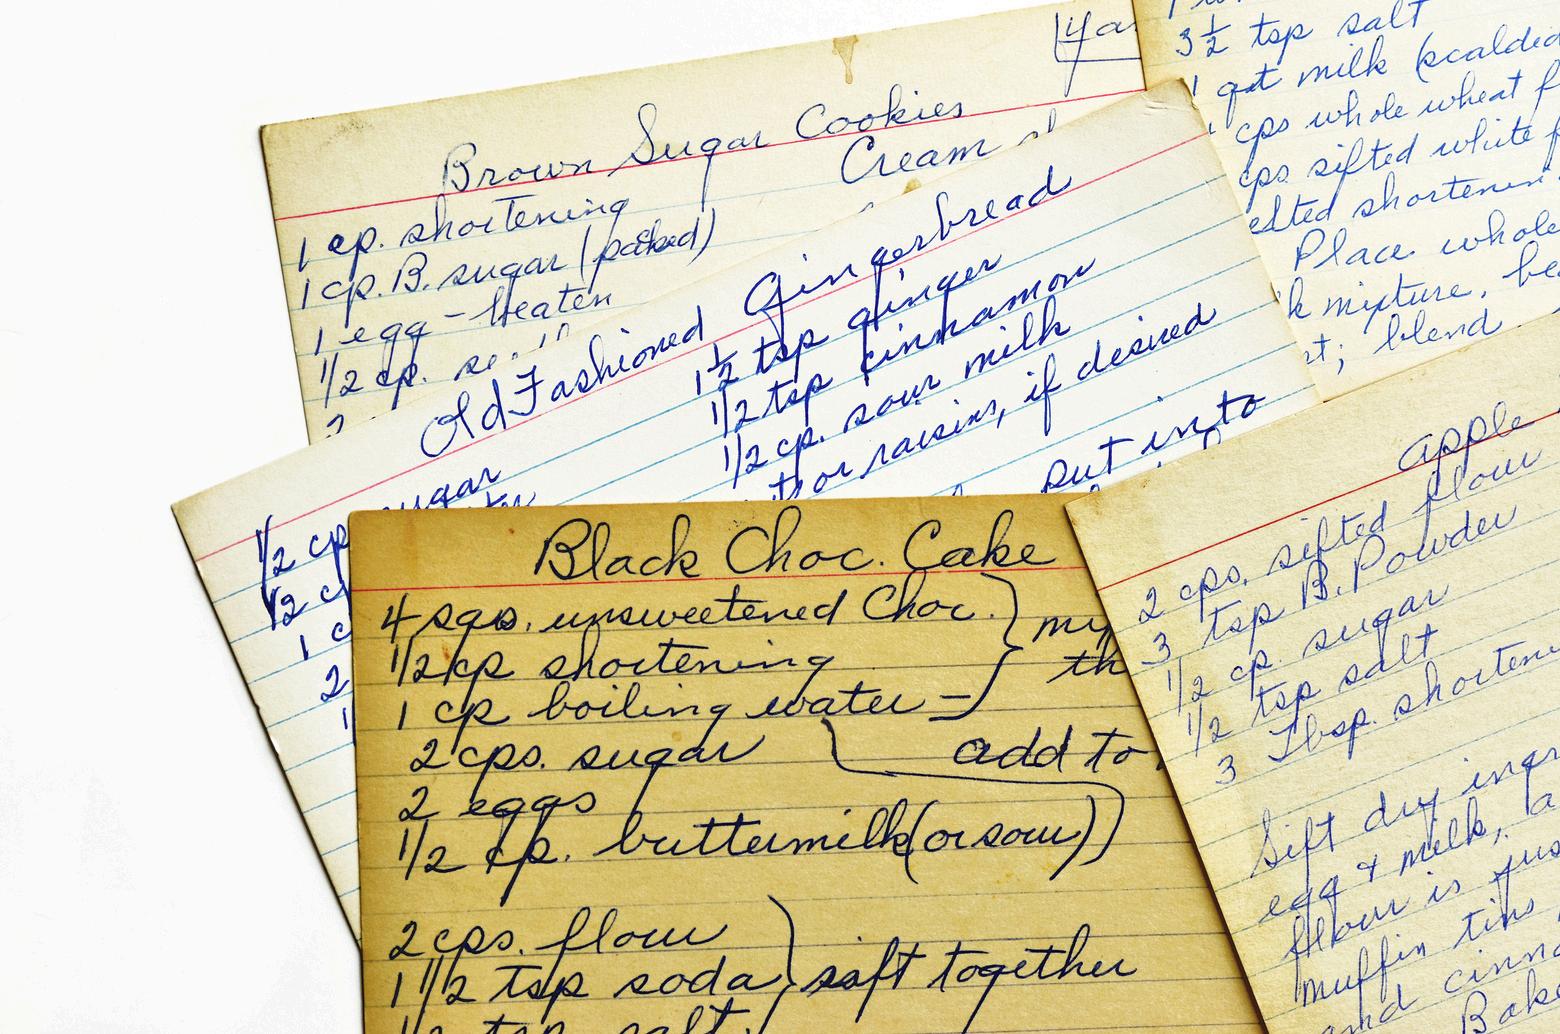 Brown Sugar Cookies
Cream
1 cp. shortening
1 cp. B. sugar (packed)
1 egg - beaten
1/2 cp.
3 1/2 tsp salt
1 qt milk (scalded
cps whole wheat
cps sifted white
shortening
Place whole
mixture,
blend
Old Fashioned Gingerbread
1/2 cp sugar
1/2
1
2
1 1/2 tsp ginger
1/2 tsp cinnamon
1/2 cp. sour milk
or raisins, if desired
put into
Black Choc. Cake
4 sqs. unsweetened Choc.
1/2 cp shortening
1 cp boiling water
add to
2 cps. sugar
2 eggs
1/2 cp. buttermilk (or sour)
2 cps. flour
1 1/2 tsp soda
sift together
1/2 tsp salt
apple
2 cps. sifted flour
3 tsp B. Powder
1/2 cp. sugar
1/2 tsp salt
3 Tbsp. shortening
Sift dry
egg & milk,
flour is
muffin tins
and
Bake